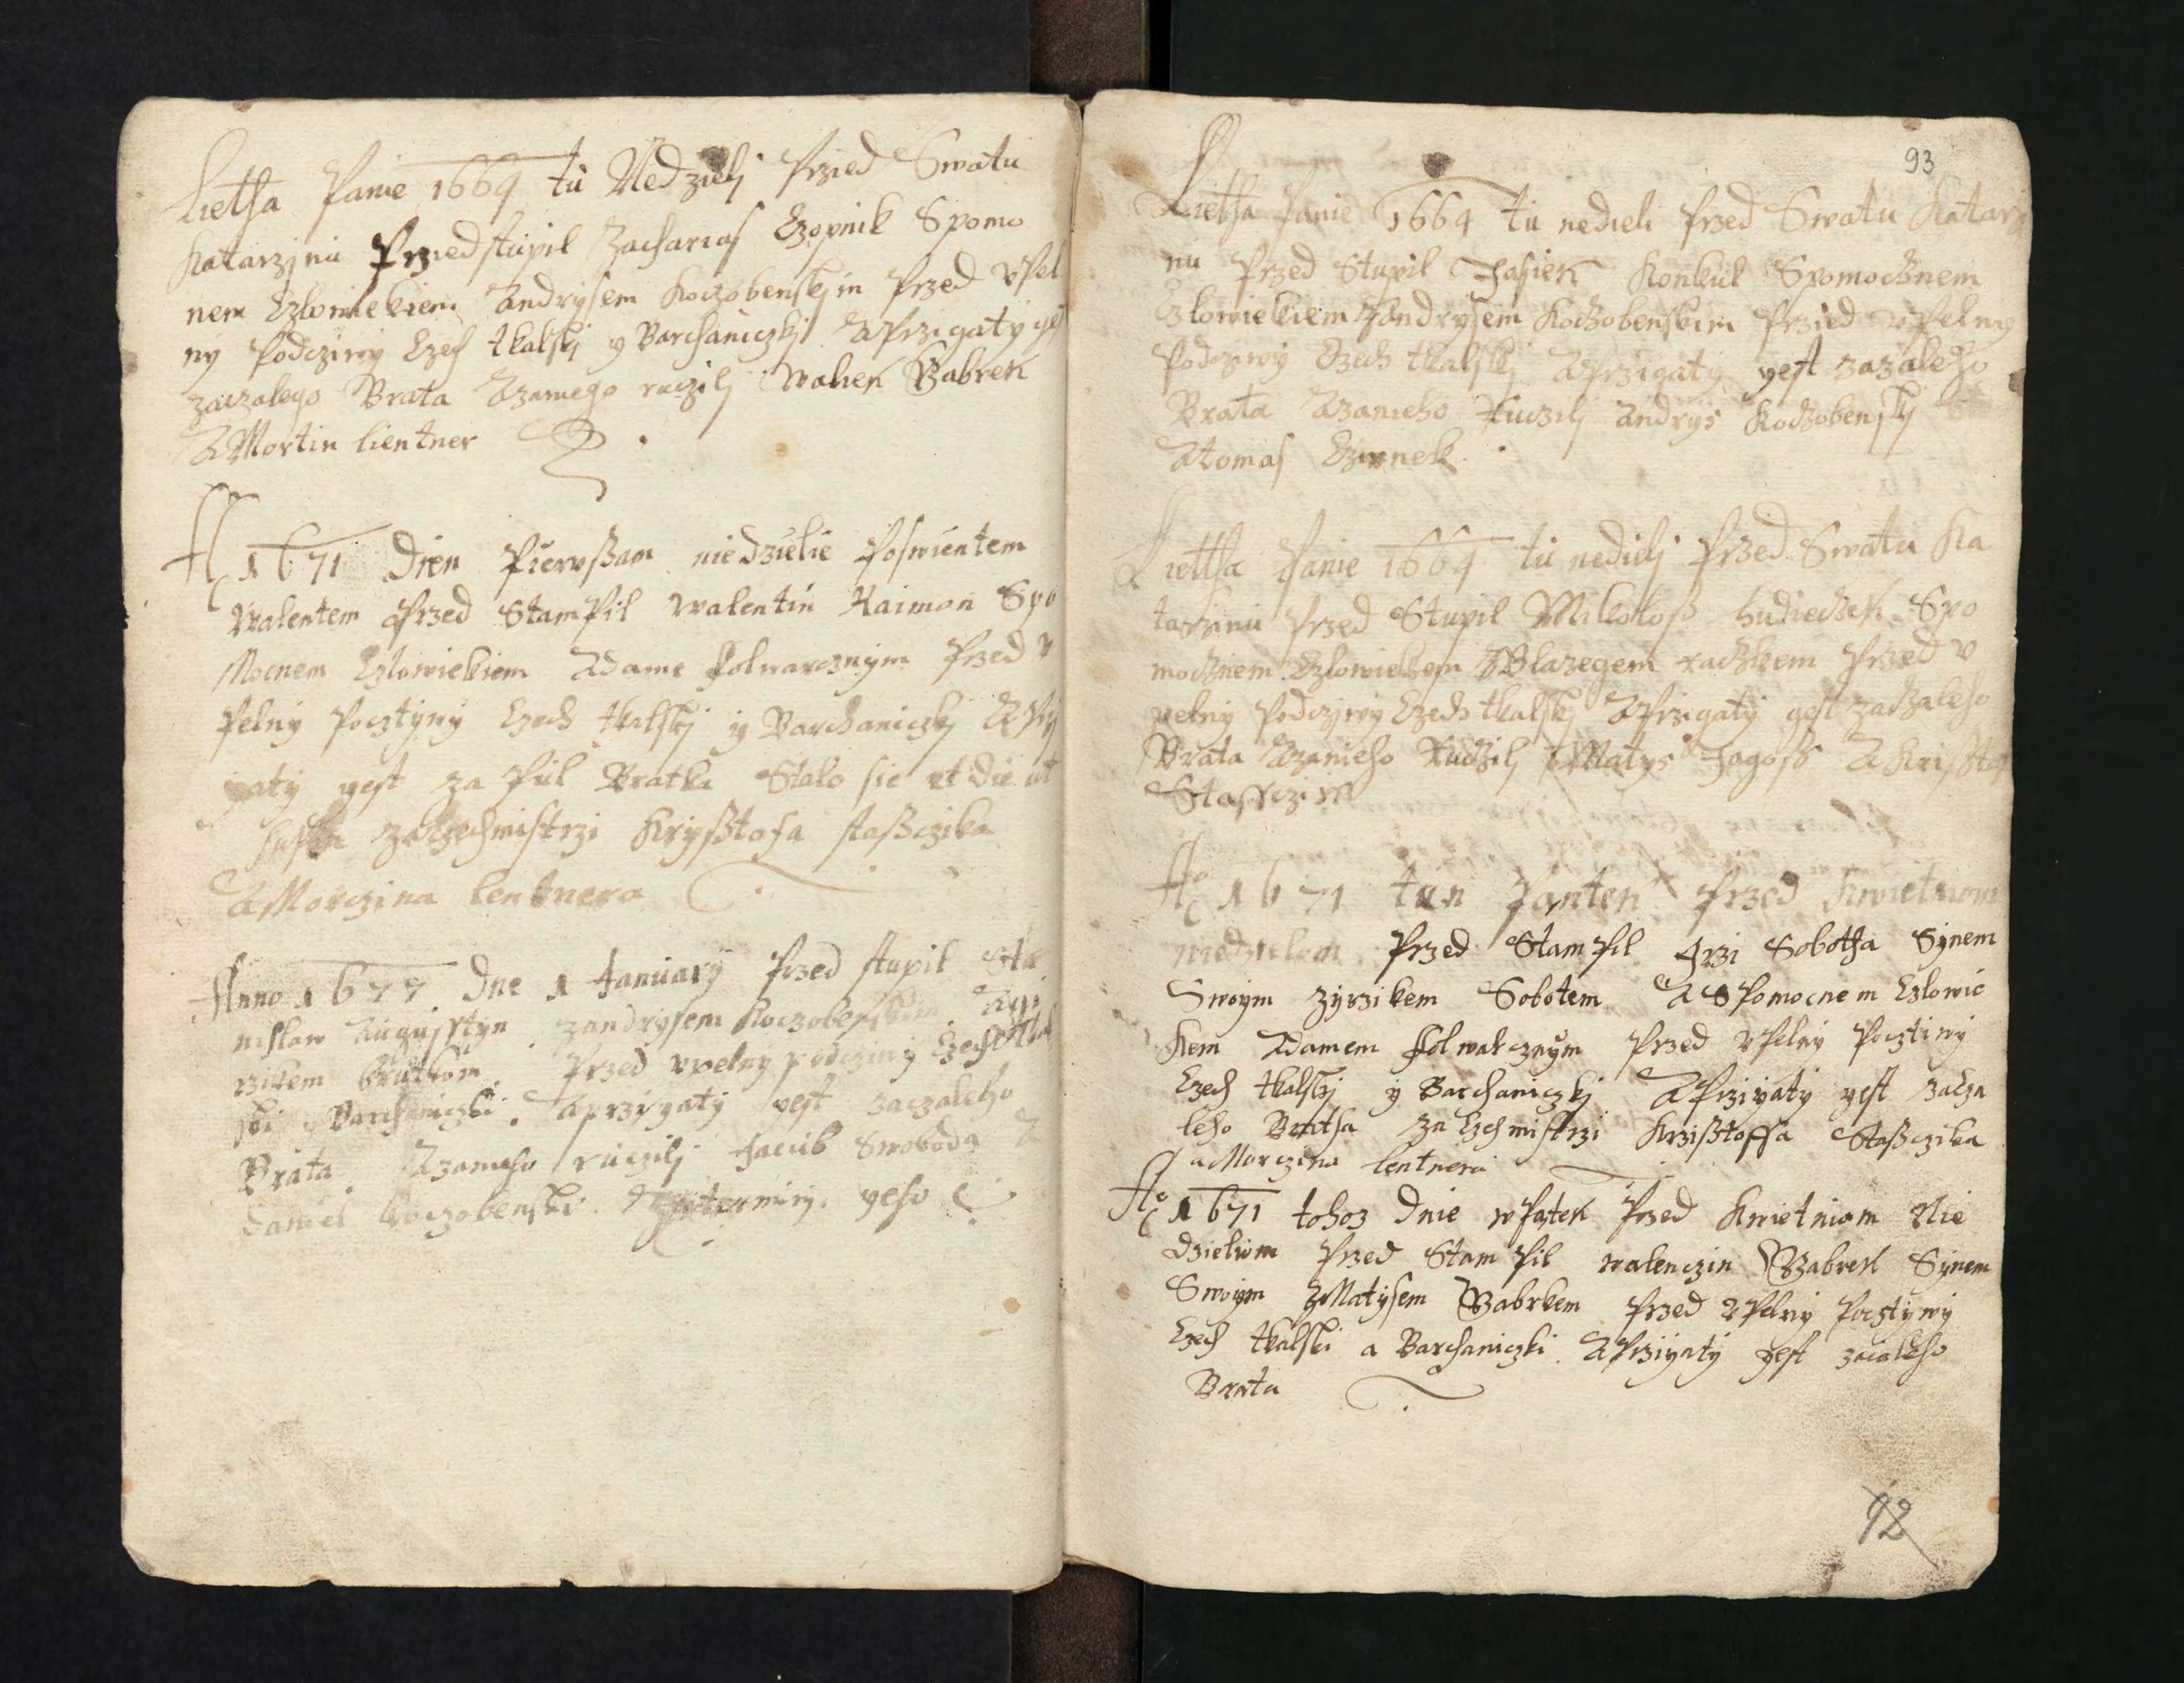 Lietha Panie 1669 tu Nedzielj Przied Swatu
Katarzjnu Prziedstupil Zacharias Czopnik Spomo
nem Czlowiekiem Zandrysem Koczobenskjm Przed vpel
ny Podcziwy Czech tkalskj y Barchaniczkj A Przigaty gest
zaczalego Brata Azaniego ruczilj Walek Babrek
A Mortin lientner
A 1671 Dien Pierwßam niedzielie Poswientem
Walentem Przed StamPil Walentin Kaimon Spo
Mocnem Czlowiekiem Adame Folwarcznÿm Przed v
Pelnÿ Pocztÿwÿ Czech tkalskj ÿ Barchaniczkj A Prÿ
yatÿ yest za Pul Bratka Stalo sie
zaczechmistrzi Krÿsßtofa staßczika
A Morczina lentnera
Anno 1677 Dne 1 Januarÿ Przed stupil Sta
nislaw Augustÿn zandrysem Koczobenskim
Przed vpelnÿ podcziwÿ Czech tkal
ski y Barchaniczki. A przigatÿ yest zaczaleho
Brata. Azanieho ruczilj Jacub Swoboda A
Daniel Koczobenski. yeho
93
Lietha Panie 1669 tu nedieli Przed Swatu Katarzi
nu Przed Stupil Jasiek Konkul Spomocznem
Czlowiekiem Zandrysem Koczobenskim Przied vpelny
Podcziwy Czech tkalskj A Przigaty gest zazaleho
Brata Azanieho Ruczilj Andrys Koczobenskj
A tomas Czimnek
Lietha Panie 1669 tu nedielj Przed Swatu Ka
tarzinu Przed Stupil Mikolaß hudieczek Spo
mocznem Czlowiekem ZBlazegem raczkem Przed v
pelny Podcziwy Czech tkalskj A Przigaty gest zaczaleho
Brata Azanieho Ruczilj Matys Jagoß A Krisstof
Stasczik
Ao 1671 ten Panten Przed Kwietniom
niedzielom Przed StamPil Jrzi Sobotha Sÿnem
Swoÿm zÿrzikem Sobotem A SPomocnem Czlowie
kem Adamem Folwarcznÿm Przed vPelnÿ Pocztiwÿ
Czech tkalskj ÿ Barchaniczkj A Prziyatÿ yest zacza
leho Bratha za Czechmistrzi Krzißtoffa Staßczika
a Morczina lentnera
Ao 1671 tohoz Dnie w Patek Przed Kwietniom Nie
dzieliom Przed StamPil walenczin Babrek Sÿnem
Swoÿm zMatÿsem Babrkem Przed vPelnÿ Pocztÿwÿ
Czech tkalski a Barchaniczki A Prziyatÿ yest zacaleho
Brata
92